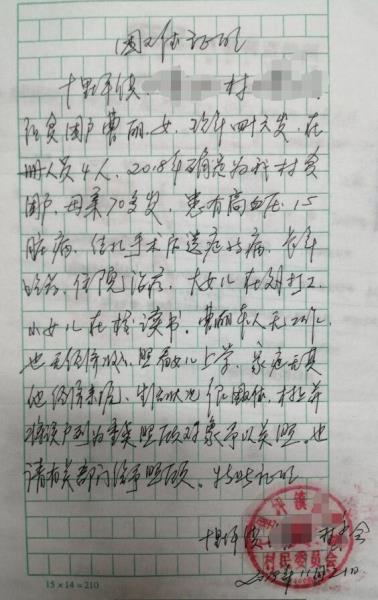 困难证明
十里坪镇 村
组贫困户曹丽,女,现年四十六岁,在
册人员4人,2018年确定为我村贫
困户,母亲70多岁,患有高血压,心
脏病,结扎手术后遗症的病,长年
吃药,住院治疗,大女儿在外打工,
小女儿在校读书,曹丽本人无工作,
也无经济收入,照看女儿上学,家庭无其
他经济来源,生活状况很困难,村上并
将该户列为重点照顾对象予以关照,也
请有关部门给予照顾。特此证明
十里坪镇 村委会
村民委员会
年11月21日
15×14=210